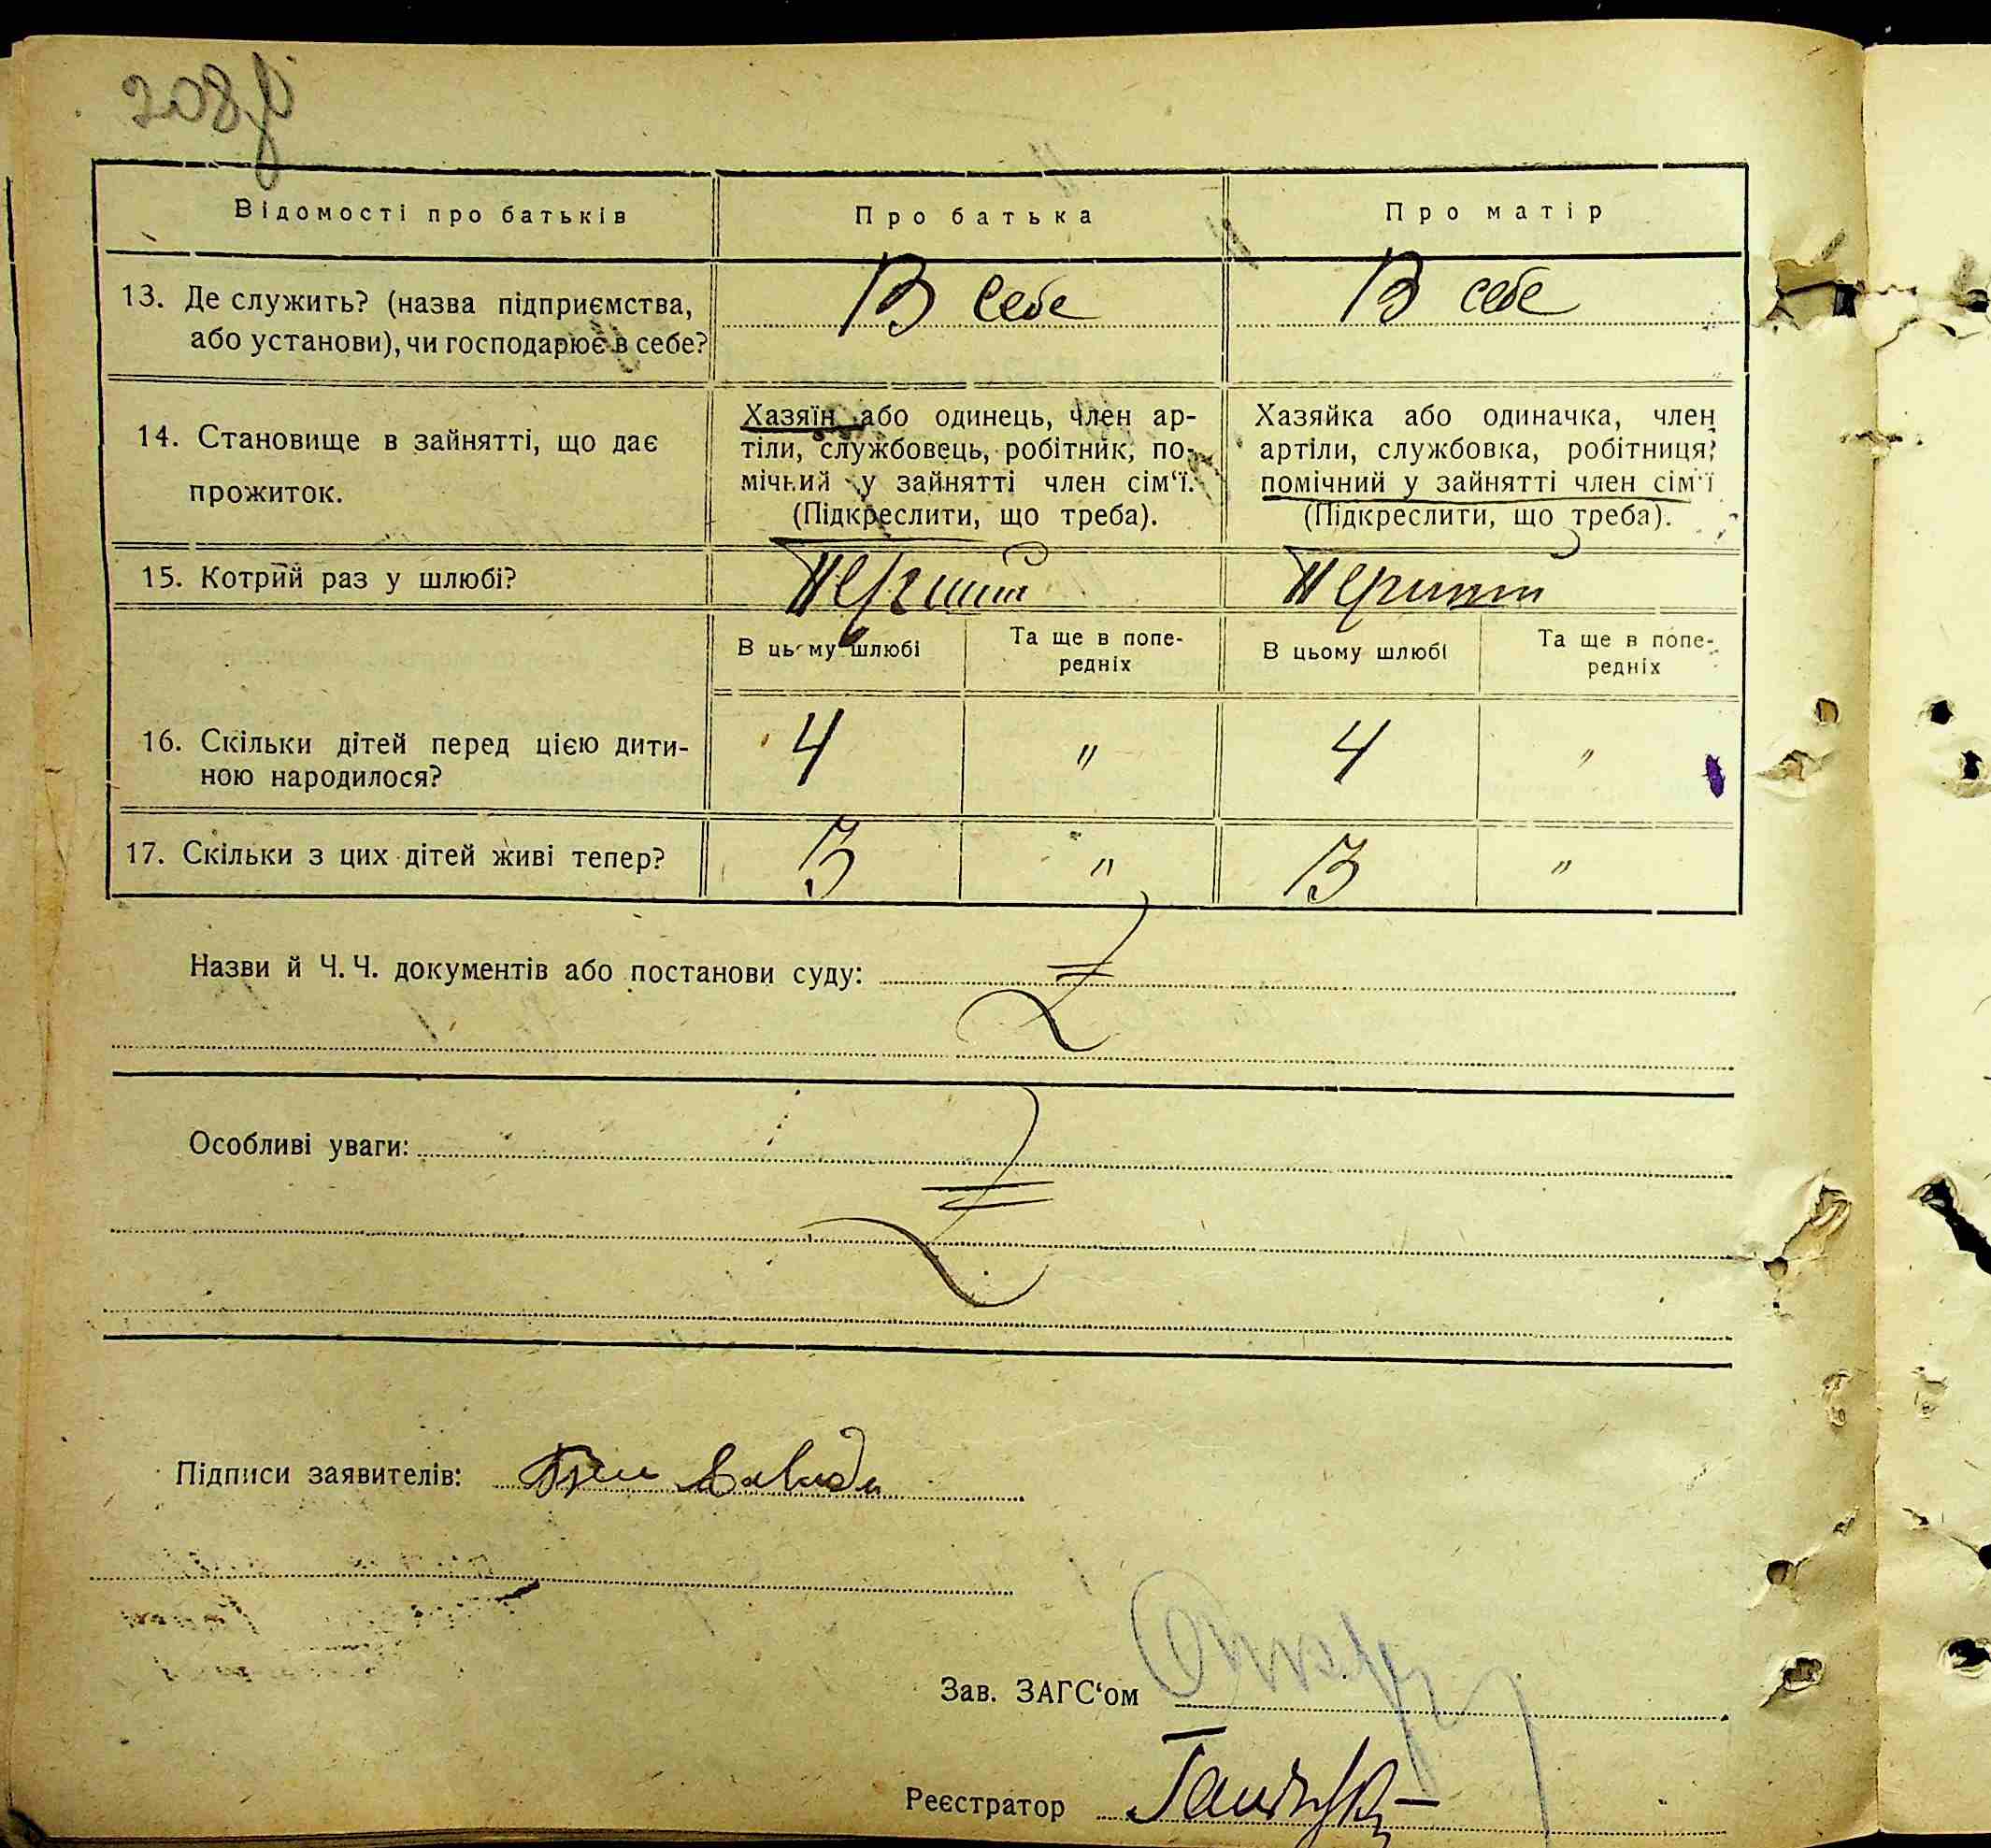 208
Відомості про батьків
Про батька
Про матір
13. Де служить? (назва підприємства,
або установи), чи господарює в себе?
В себе
В себе
14. Становище в зайнятті, що дає
прожиток.
Хазяїн або одинець, член ар-
тіли, службовець, робітник, по-
мічний у зайнятті член сім‘ї.
(Підкреслити, що треба).
Хазяйка або одиначка, член
артіли, службовка, робітниця,
помічний у зайнятті член сім‘ї
(Підкреслити, що треба).
15. Котрий раз у шлюбі?
Перший
Перший
В цьому шлюбі
Та ще в попе-
редніх
В цьому шлюбі
Та ще в попе-
редніх
16. Скільки дітей перед цією дити-
ною народилося?
4
"
4
"
17. Скільки з цих дітей живі тепер?
3
"
3
"
Назви й Ч. Ч. документів або постанови суду:
Особливі уваги:
Підписи заявителів:
Зав. ЗАГС‘ом
Реєстратор